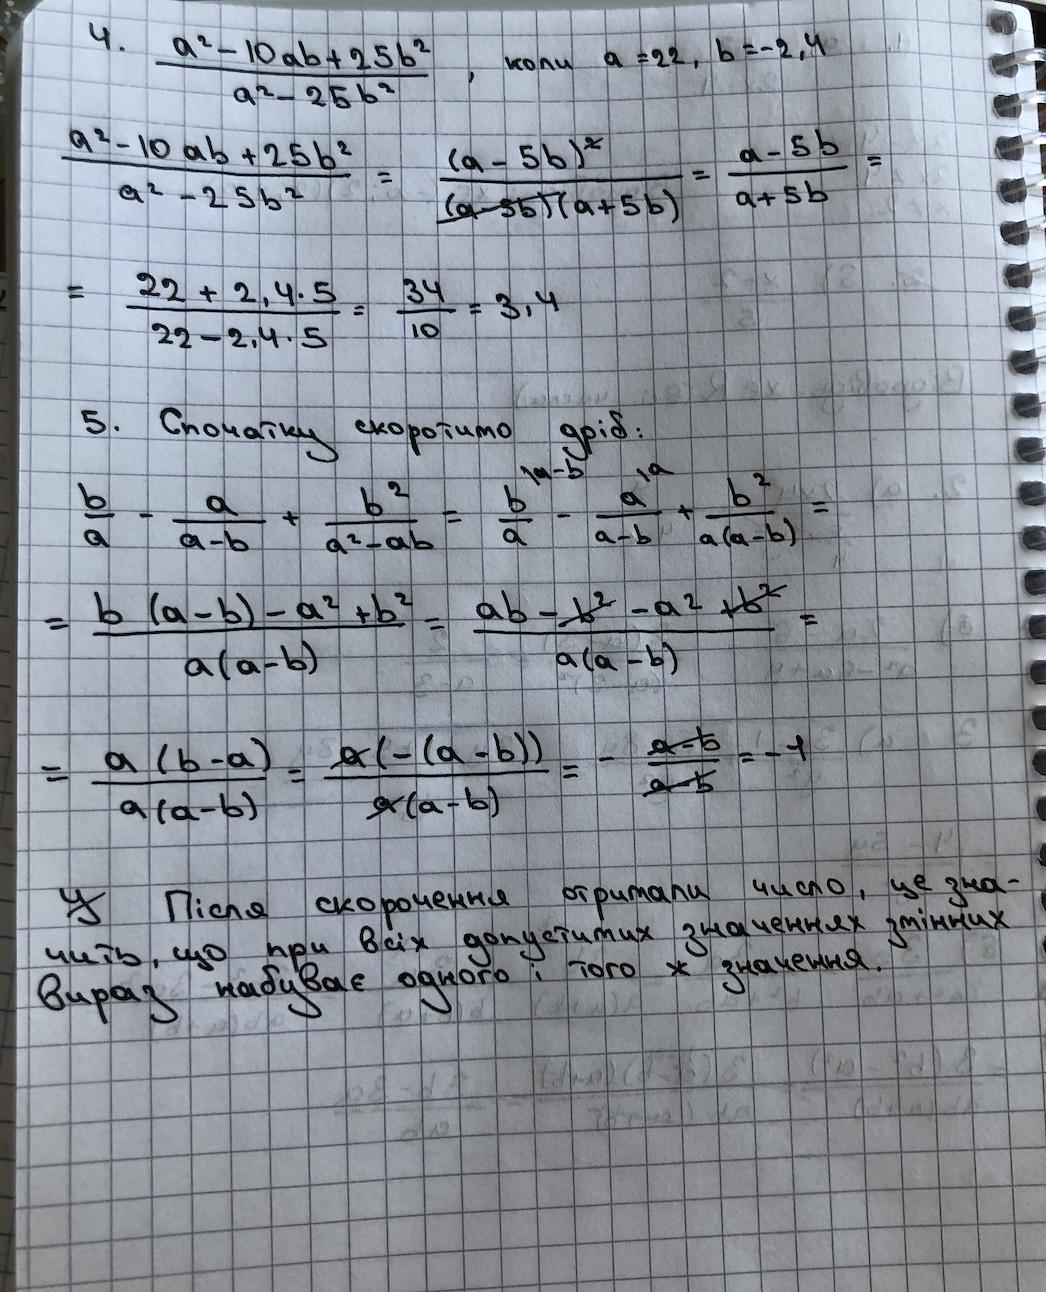 4. (a² - 10ab + 25b²)/(a² - 25b²), коли a = 22, b = -2,4
(a² - 10ab + 25b²)/(a² - 25b²) = (a - 5b)²/((a - 5b)(a + 5b)) = (a - 5b)/(a + 5b) =
= (22 + 2,4·5)/(22 - 2,4·5) = 34/10 = 3,4
5. Спочатку скоротимо дріб:
b/a - a/(a-b) + b²/(a² - ab) = b/a \a-b - a/(a-b) \a + b²/(a(a-b)) =
= (b (a-b) - a² + b²)/(a(a-b)) = (ab - b² - a² + b²)/(a(a-b)) =
= a(b-a)/(a(a-b)) = a(-(a-b))/(a(a-b)) = - (a-b)/(a-b) = -1
Після скорочення отримали число, це зна-
чить, що при всіх допустимих значеннях змінних
вираз набуває одного і того ж значення.